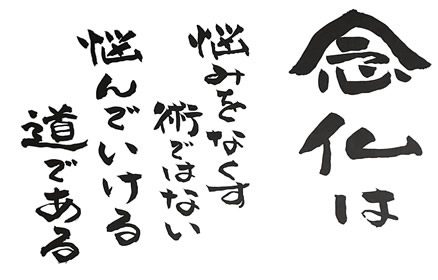 念仏は
悩みをなくす
術ではない
悩んでいける
道である